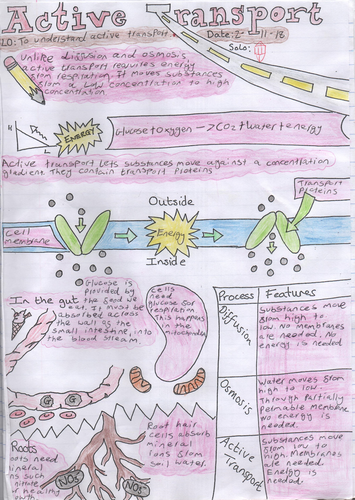 Active Transport
LO: To understand active transport.
Date: 2-11-18
Solo:
Unlike diffusion and osmosis,
active transport requires energy
from respiration. It moves substances
from a low concentration to high
concentration
H
L
ENERGY
Glucose + oxygen -> CO2 + water + energy
Active transport lets substances move against a concentration
gradient. They contain transport proteins
Transport
Proteins
Outside
Cell
membrane
Energy
Inside
In the gut
Glucose is
provided by
the food we
eat. It must be
absorbed across
the wall of the
small intestine, into
the blood stream.
Cells
need
glucose for
respiration.
This happens
in the
mitochondria
G
G
Process
Features
Diffusion
Substances move
from high to
low. No membranes
are needed. No
energy is needed
Osmosis
Water moves from
high to low
Through partially
permeable membrane
No energy is
needed.
Active
Transport
Substances move
from low to
high. Membranes
are needed.
Energy is
needed.
Root hair
cells absorb
mineral
ions from
soil water.
Roots
need
mineral
ions such
healthy
growth
NO3
NO3